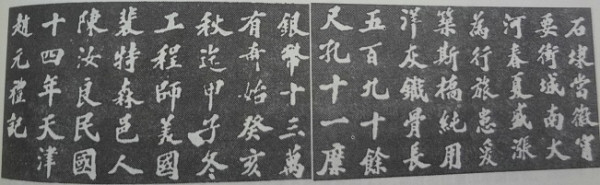 石埭當徽甯
要衝城南大
河春夏盛漲
為行旅患爰
築斯橋純用
洋灰鐵骨長
五百九十餘
尺孔十一糜
銀幣十三萬
有奇始癸亥
秋迄甲子冬
工程師美國
裴特森邑人
陳汝良民國
十四年天津
趙元禮記